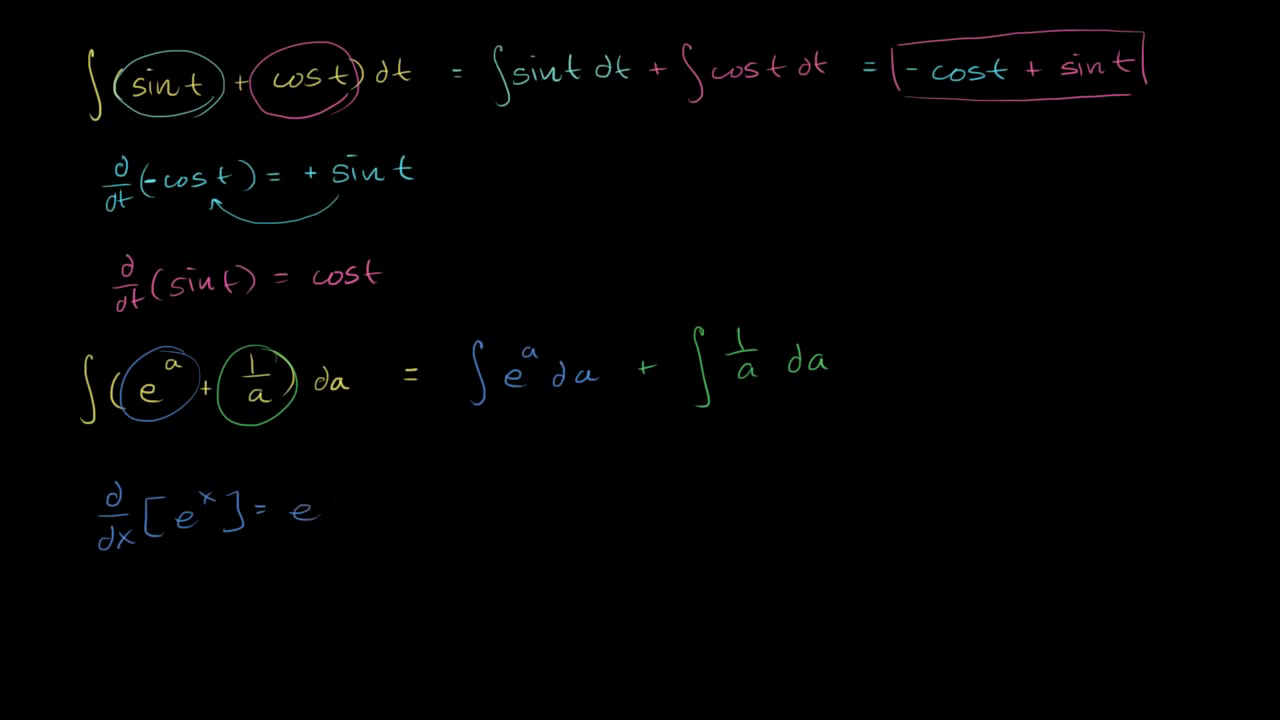 ∫(sin t + cos t) dt = ∫sin t dt + ∫cos t dt = -cos t + sin t
d/dt(-cos t) = + sin t
d/dt(sin t) = cos t
∫(e^a + 1/a) da = ∫e^a da + ∫1/a da
d/dx[e^x] = e